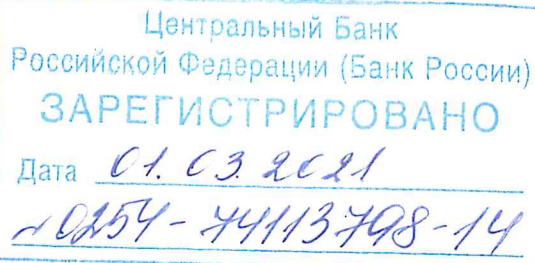 Центральный Банк
Российской Федерации (Банк России)
ЗАРЕГИСТРИРОВАНО
Дата 01.03.2021
№ 0254-74113798-14